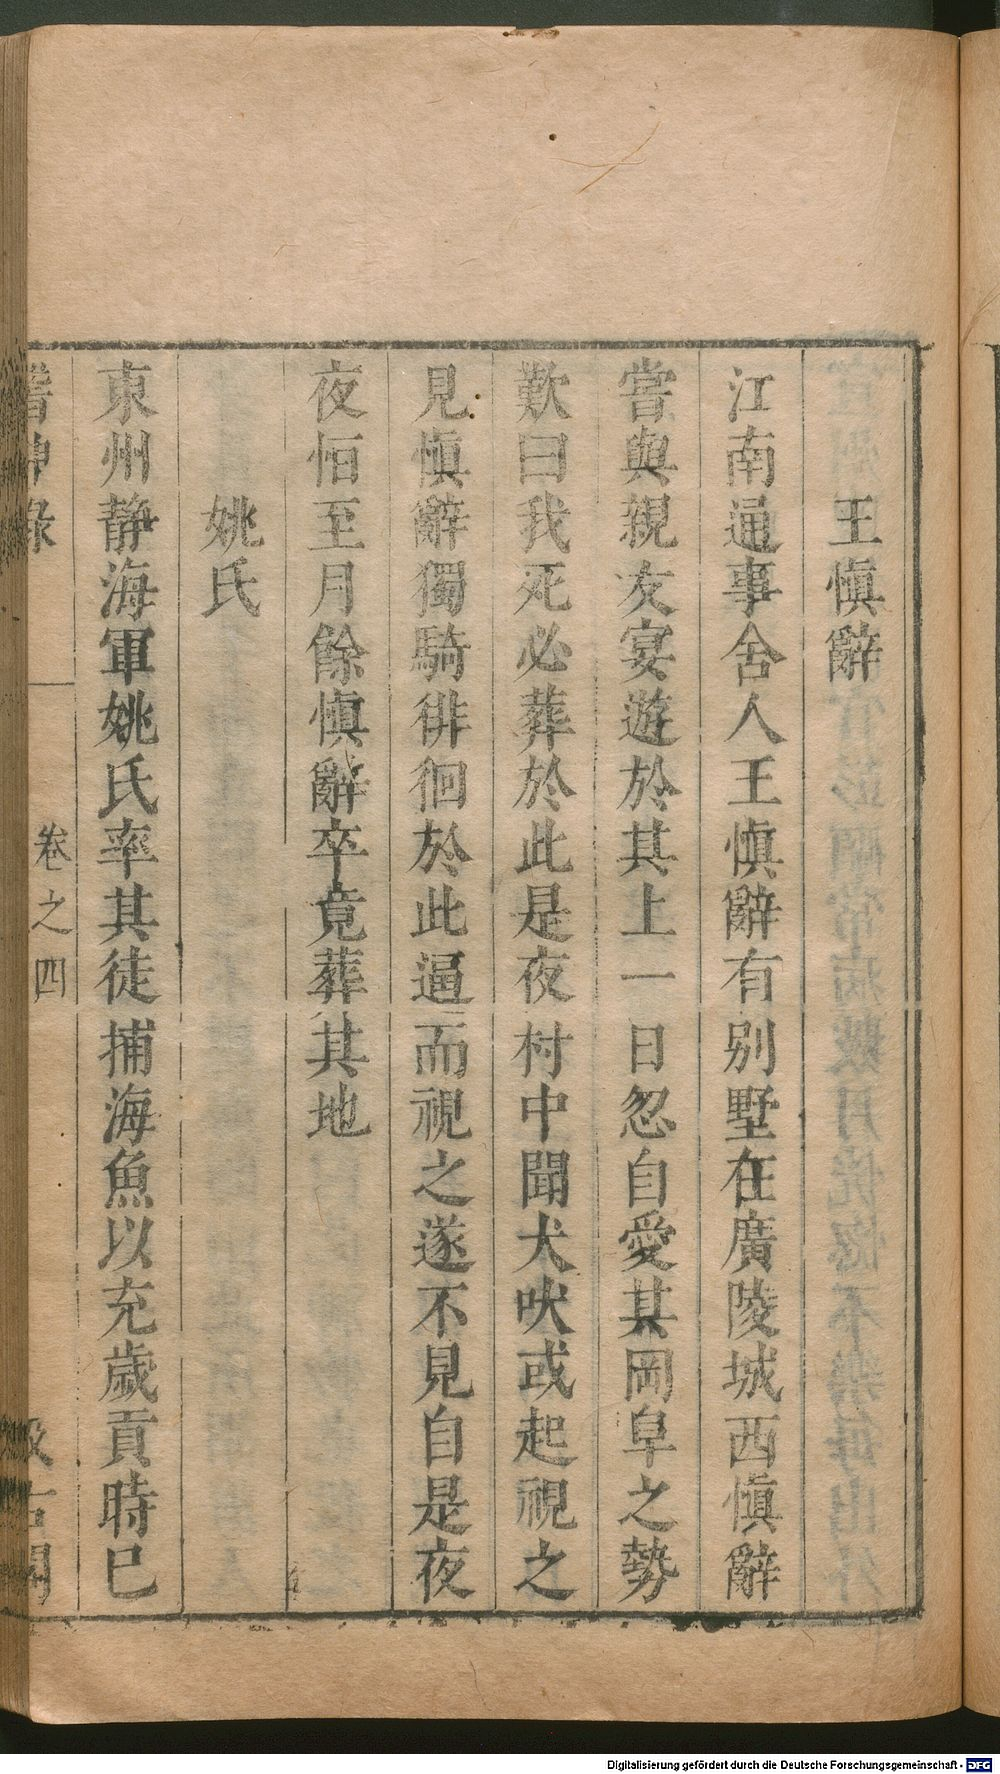 王慎辭
江南通事舍人王慎辭有別墅在廣陵城西慎辭
嘗與親友宴遊於其上一日忽自愛其岡阜之勢
歎曰我死必葬於此是夜村中聞犬吠或起視之
見慎辭獨騎徘徊於此逼而視之遂不見自是夜
夜恒至月餘慎辭卒竟葬其地
姚氏
東州静海軍姚氏率其徒捕海魚以充歲貢時已
稽神錄
卷之四
汲古閣
Digitalisierung gefördert durch die Deutsche Forschungsgemeinschaft - DFG